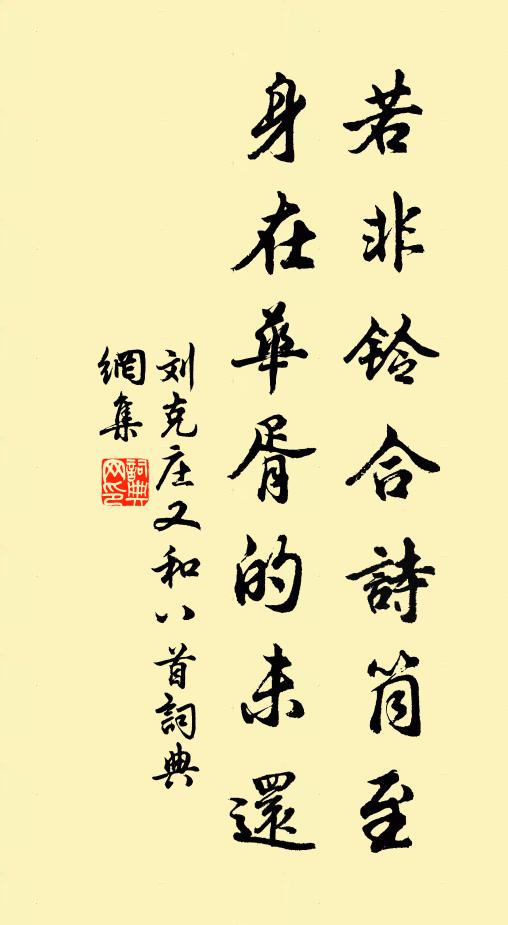 若非鈴合詩筒至
身在華胥的未還
刘克庄又和八首詞典
網集
詞典网印